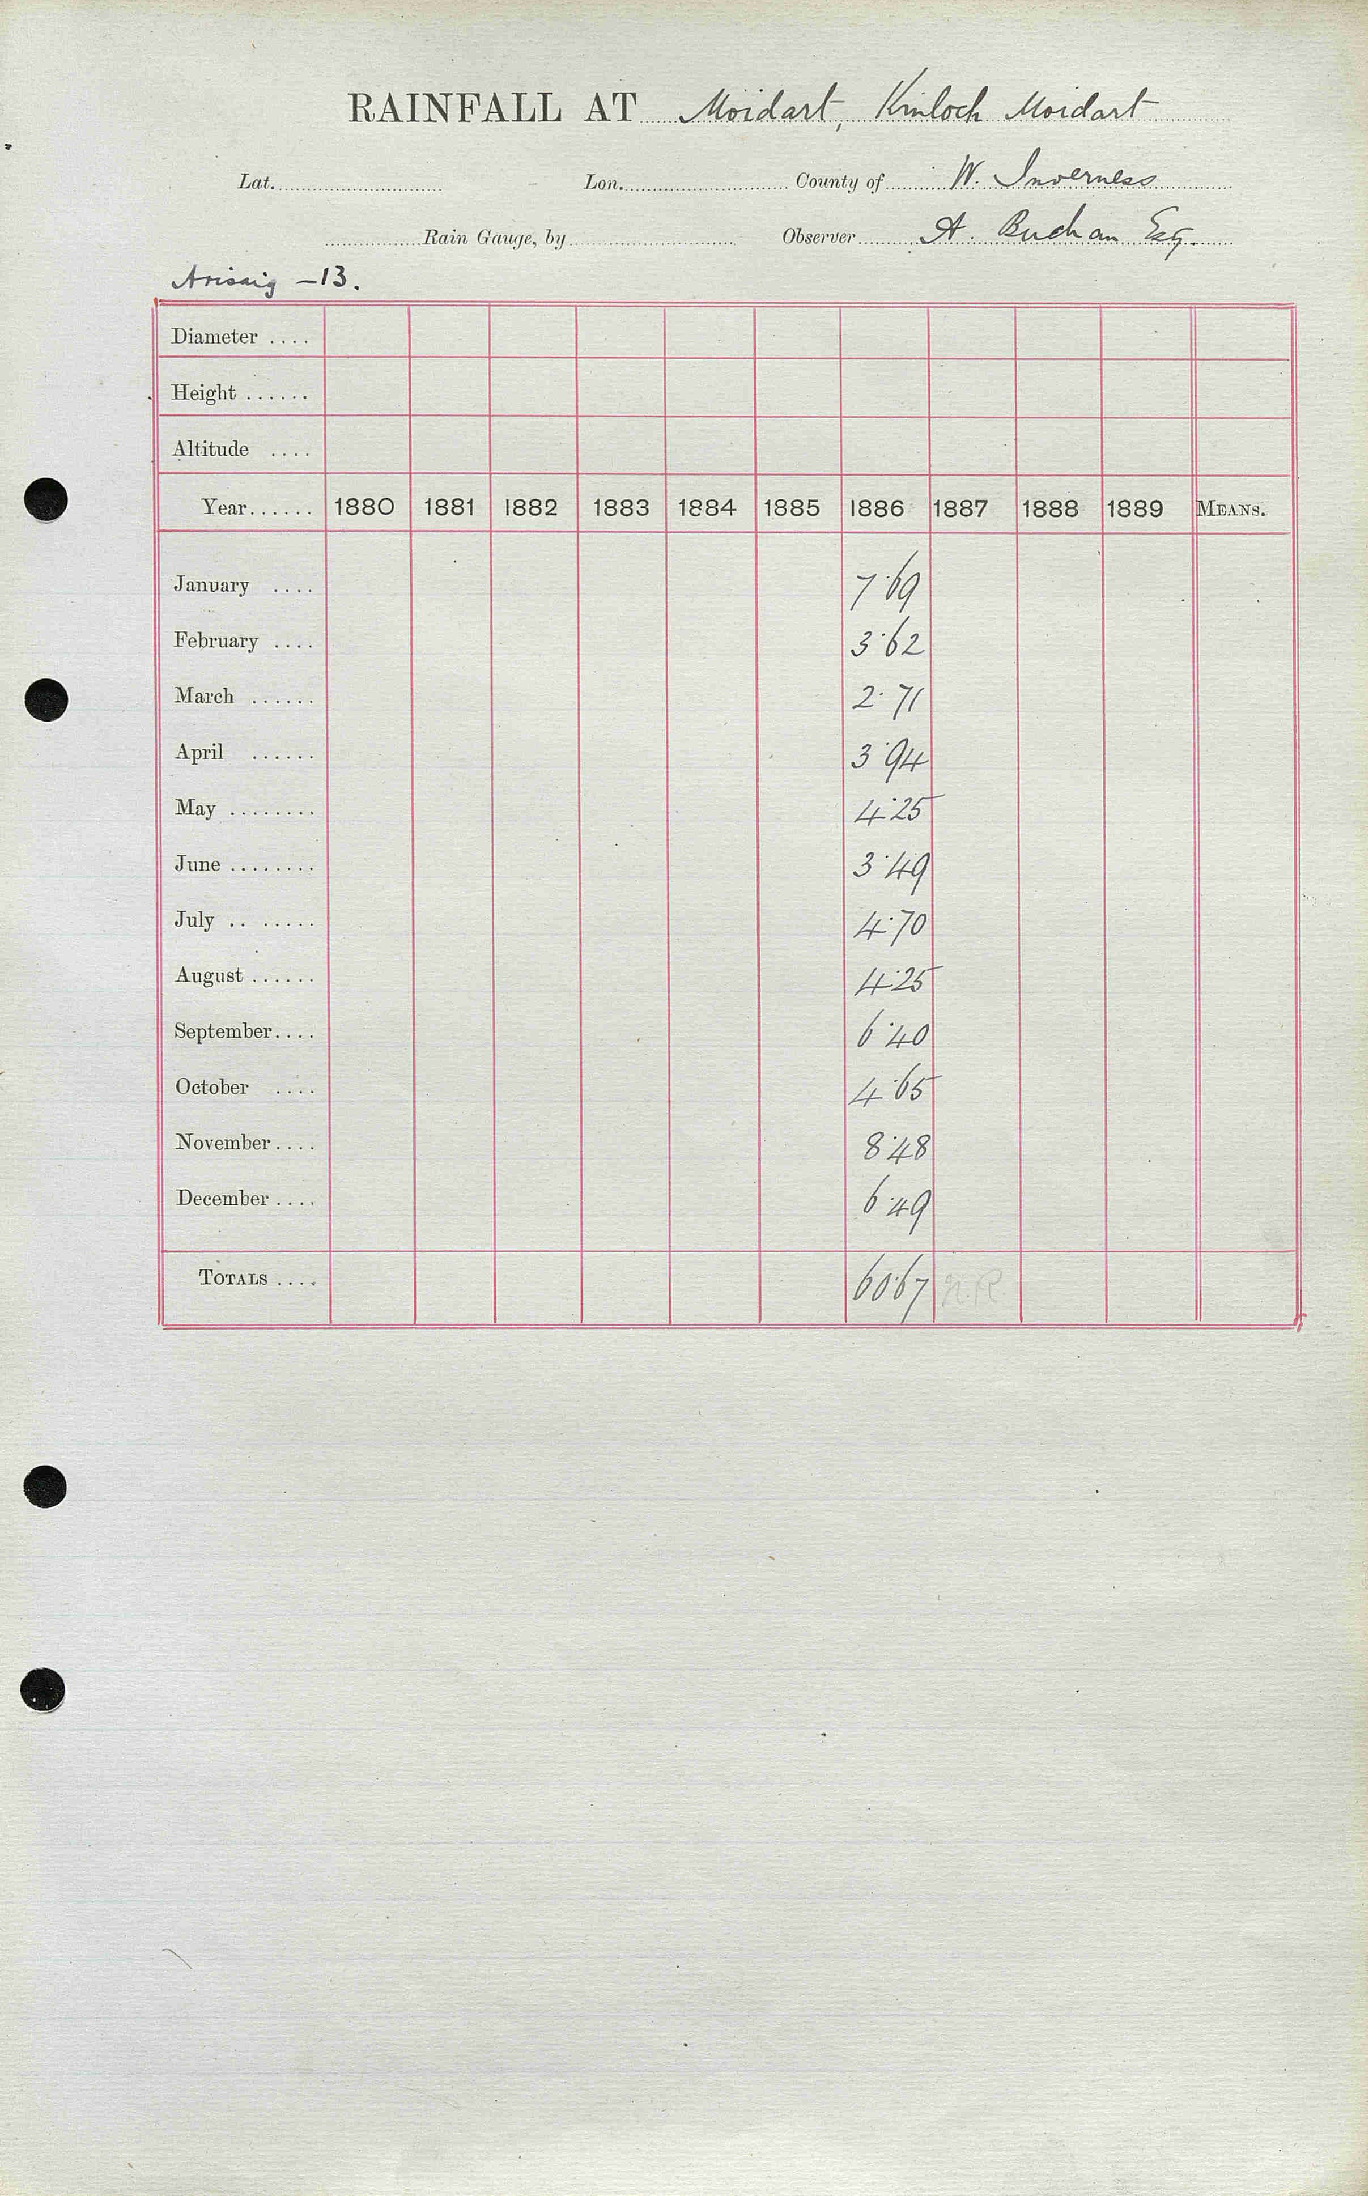 RAINFALL AT Moidart, Kinloch Moidart
Lat. Lon. County of W. Inverness
Rain Gauge, by Observer A. Buchan Esq.
Arisaig -13.
Diameter ....
Height ......
Altitude ....
Year...... 1880 1881 1882 1883 1884 1885 1886 1887 1888 1889 MEANS.
January .... 7.69
February .... 3.62
March ...... 2.71
April ...... 3.94
May ........ 4.25
June ........ 3.49
July .. ...... 4.70
August ...... 4.25
September.... 6.40
October .... 4.65
November.... 8.48
December.... 6.49
TOTALS .... 60.67 N.R.